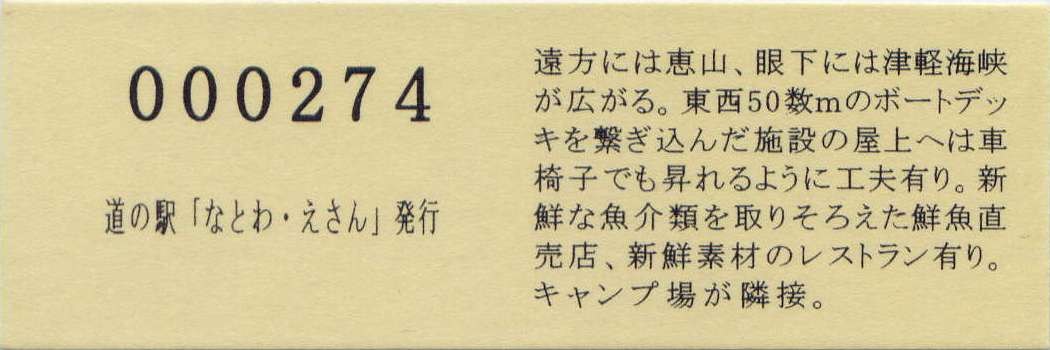 000274
道の駅「なとわ・えさん」発行
遠方には恵山、眼下には津軽海峡
が広がる。東西50数mのボートデッ
キを繋ぎ込んだ施設の屋上へは車
椅子でも昇れるように工夫有り。新
鮮な魚介類を取りそろえた鮮魚直
売店、新鮮素材のレストラン有り。
キャンプ場が隣接。